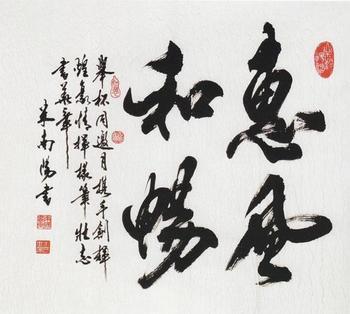 惠風
和暢
舉杯同邀月携手創輝
煌豪情揮椽筆壯志
書華章
米南陽書